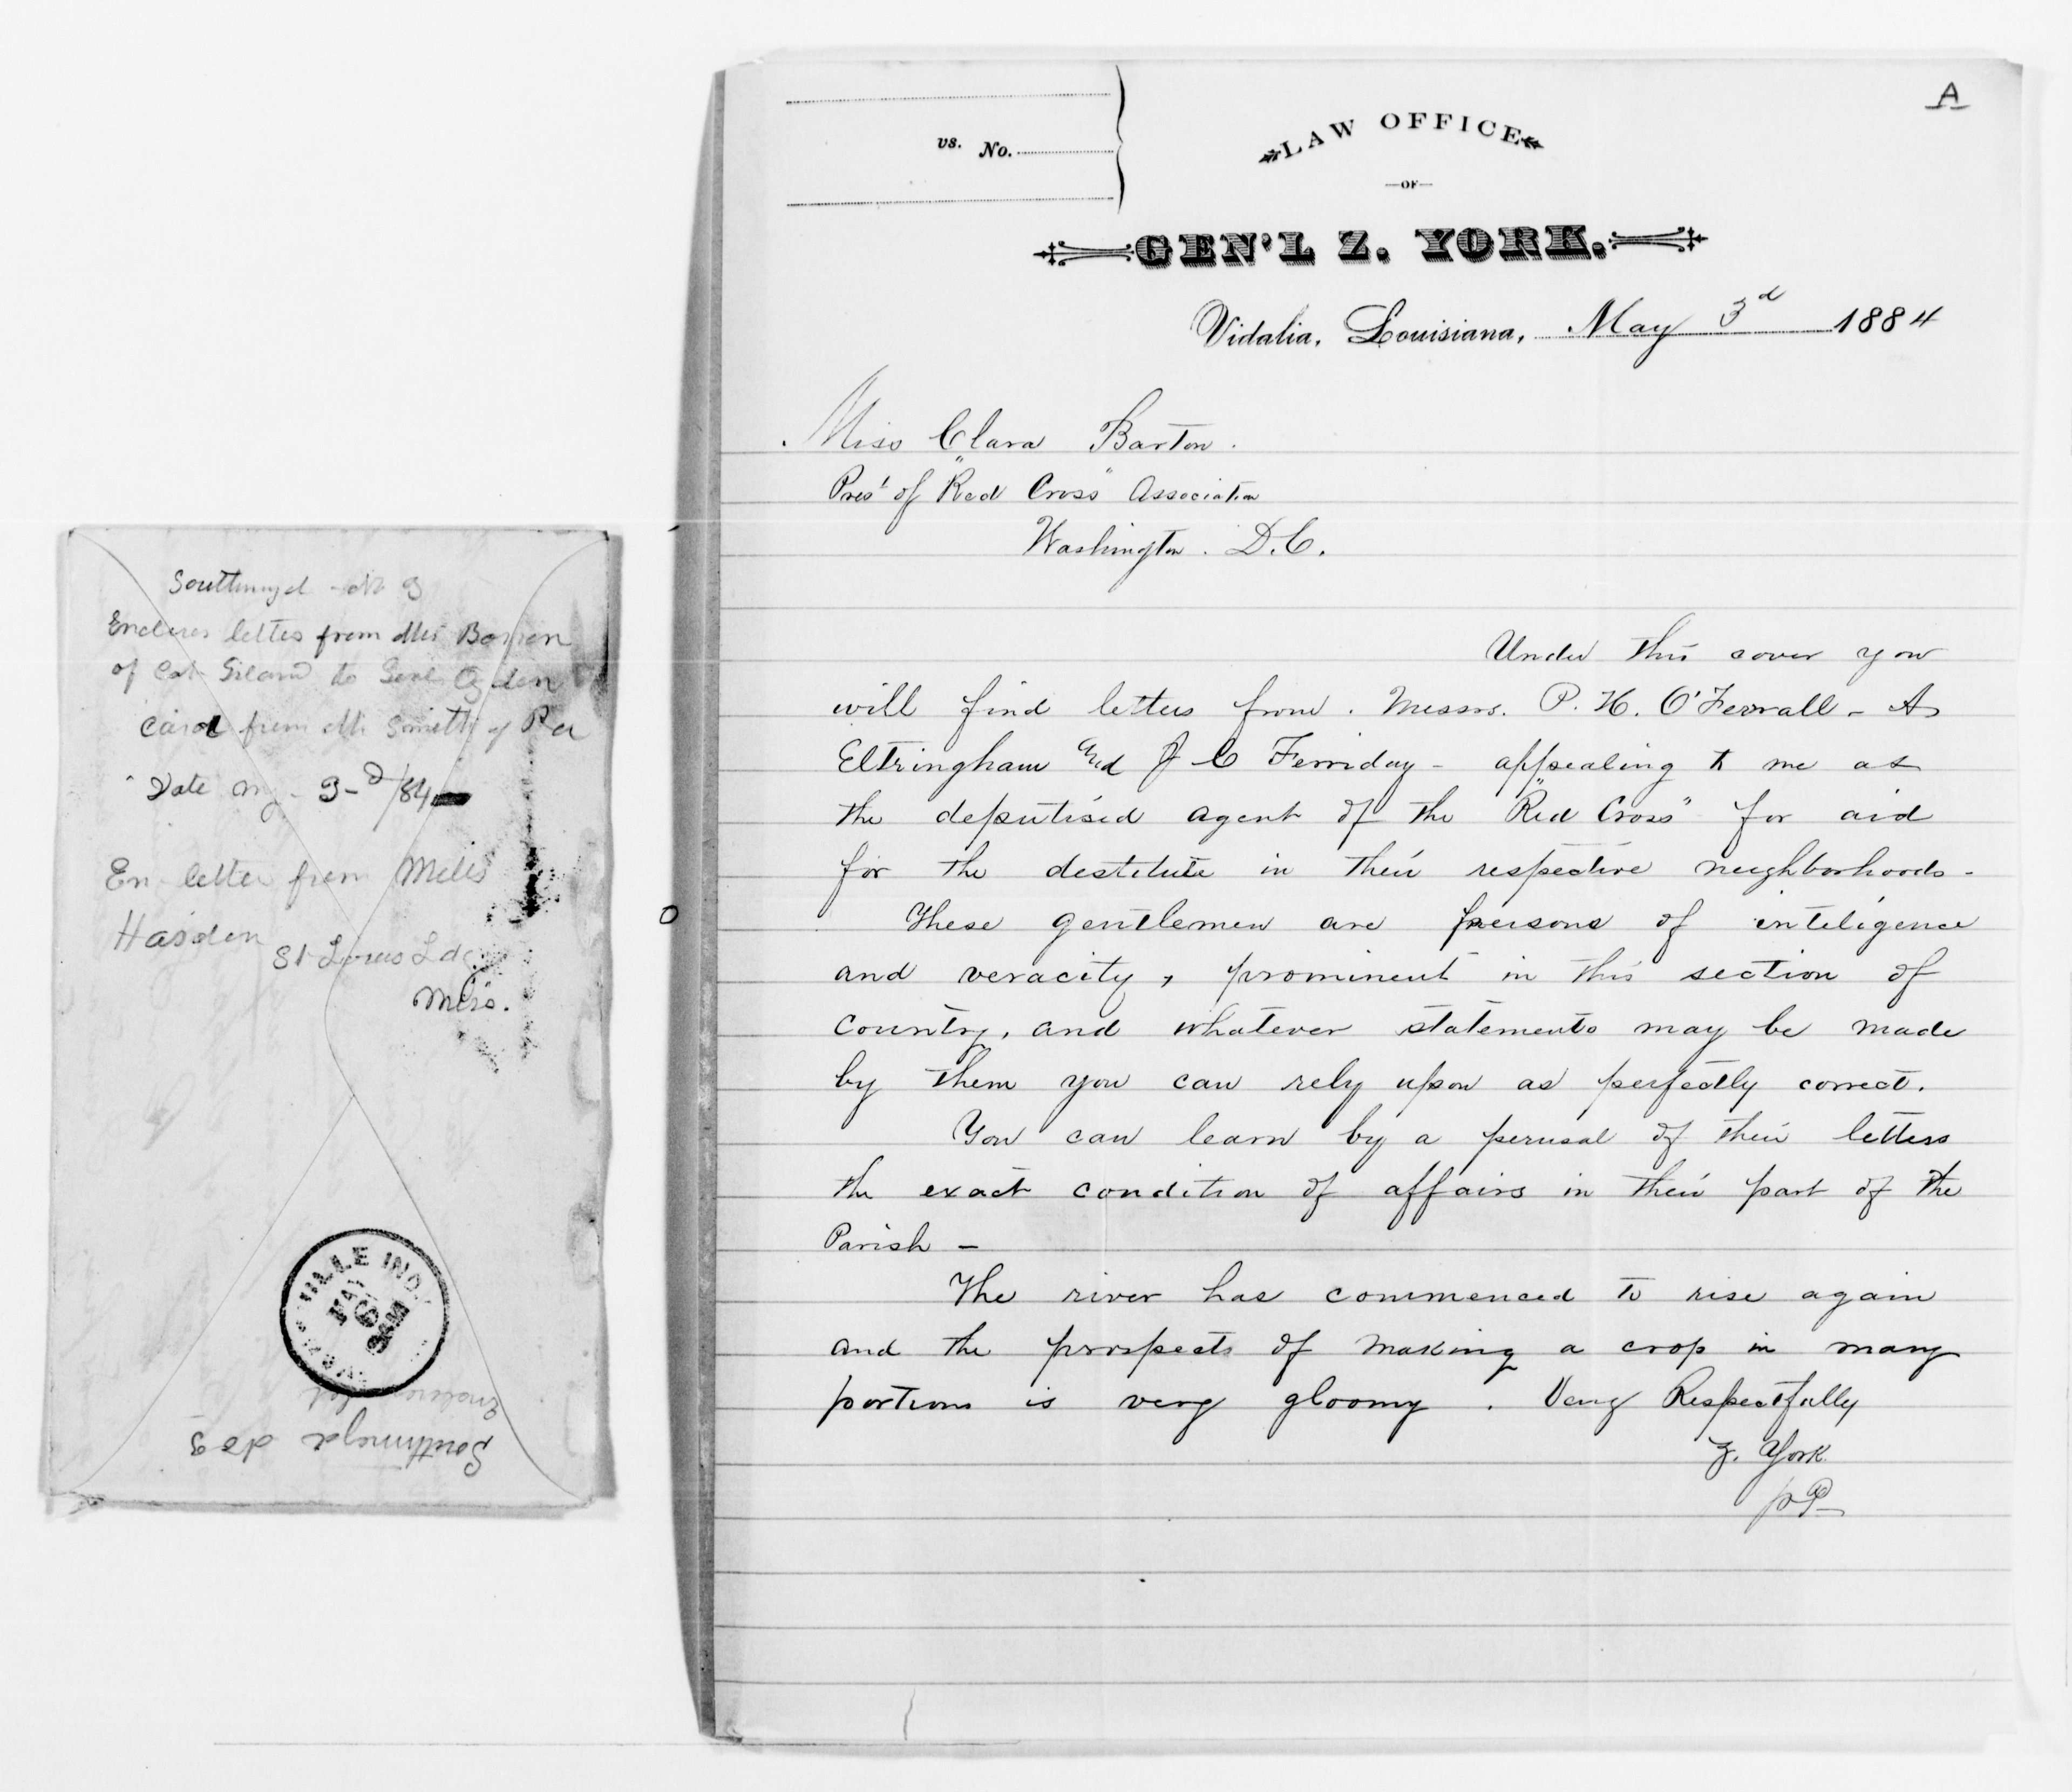 Southmayd - No 3
Encloses letter from Mr
of Cat Island to Genl Ogden
card from Mr Smith of Pa
Date My - 3-d/84
En letter from Miles
Hasden
St Louis Ldg
Miss.
VILLE IND.
MAY
6
9AM
Enclosing
Southmayd No 3
A
vs. No.
LAW OFFICE
—OF—
GEN'L Z. YORK.
Vidalia, Louisiana, May 3d 1884
Miss Clara Barton.
Prest of "Red Cross" Association
Washington. D.C.
Under this cover you
will find letters from. Messrs. P. H. O'Ferrall - A
Eltringham and J C Ferriday - appealing to me as
the deputised agent of the "Red Cross" for aid
for the destitute in their respective neighborhoods -
These gentlemen are persons of inteligence
and veracity, prominent in this section of
country, and whatever statements may be made
by them you can rely upon as perfectly correct.
You can learn by a perusal of their letters
the exact condition of affairs in their part of the
Parish —
The river has commenced to rise again
and the prospects of making a crop in many
portions is very gloomy. Very Respectfully
Z. York
pP